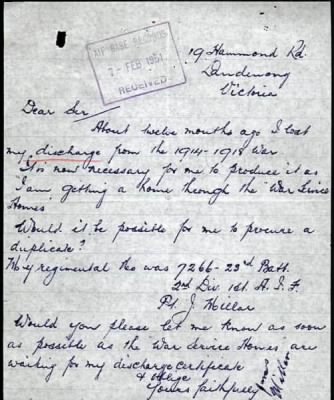 19 Hammond Rd.
Dandenong
Victoria
7 - FEB 1951
RECEIVED
Dear Sir
About twelve months ago I lost
my discharge from the 1914-1918 War
It is now necessary for me to produce it as
I am getting a home through the War Service
Homes
Would it be possible for me to procure a
duplicate?
My regimental No was 7266 - 23rd Batt.
2nd Div. 1st. A. I. F.
Pt. J Millar
Would you please let me know as soon
as possible as the War Service Homes are
waiting for my discharge certificate
& oblige
Yours faithfully
Millar